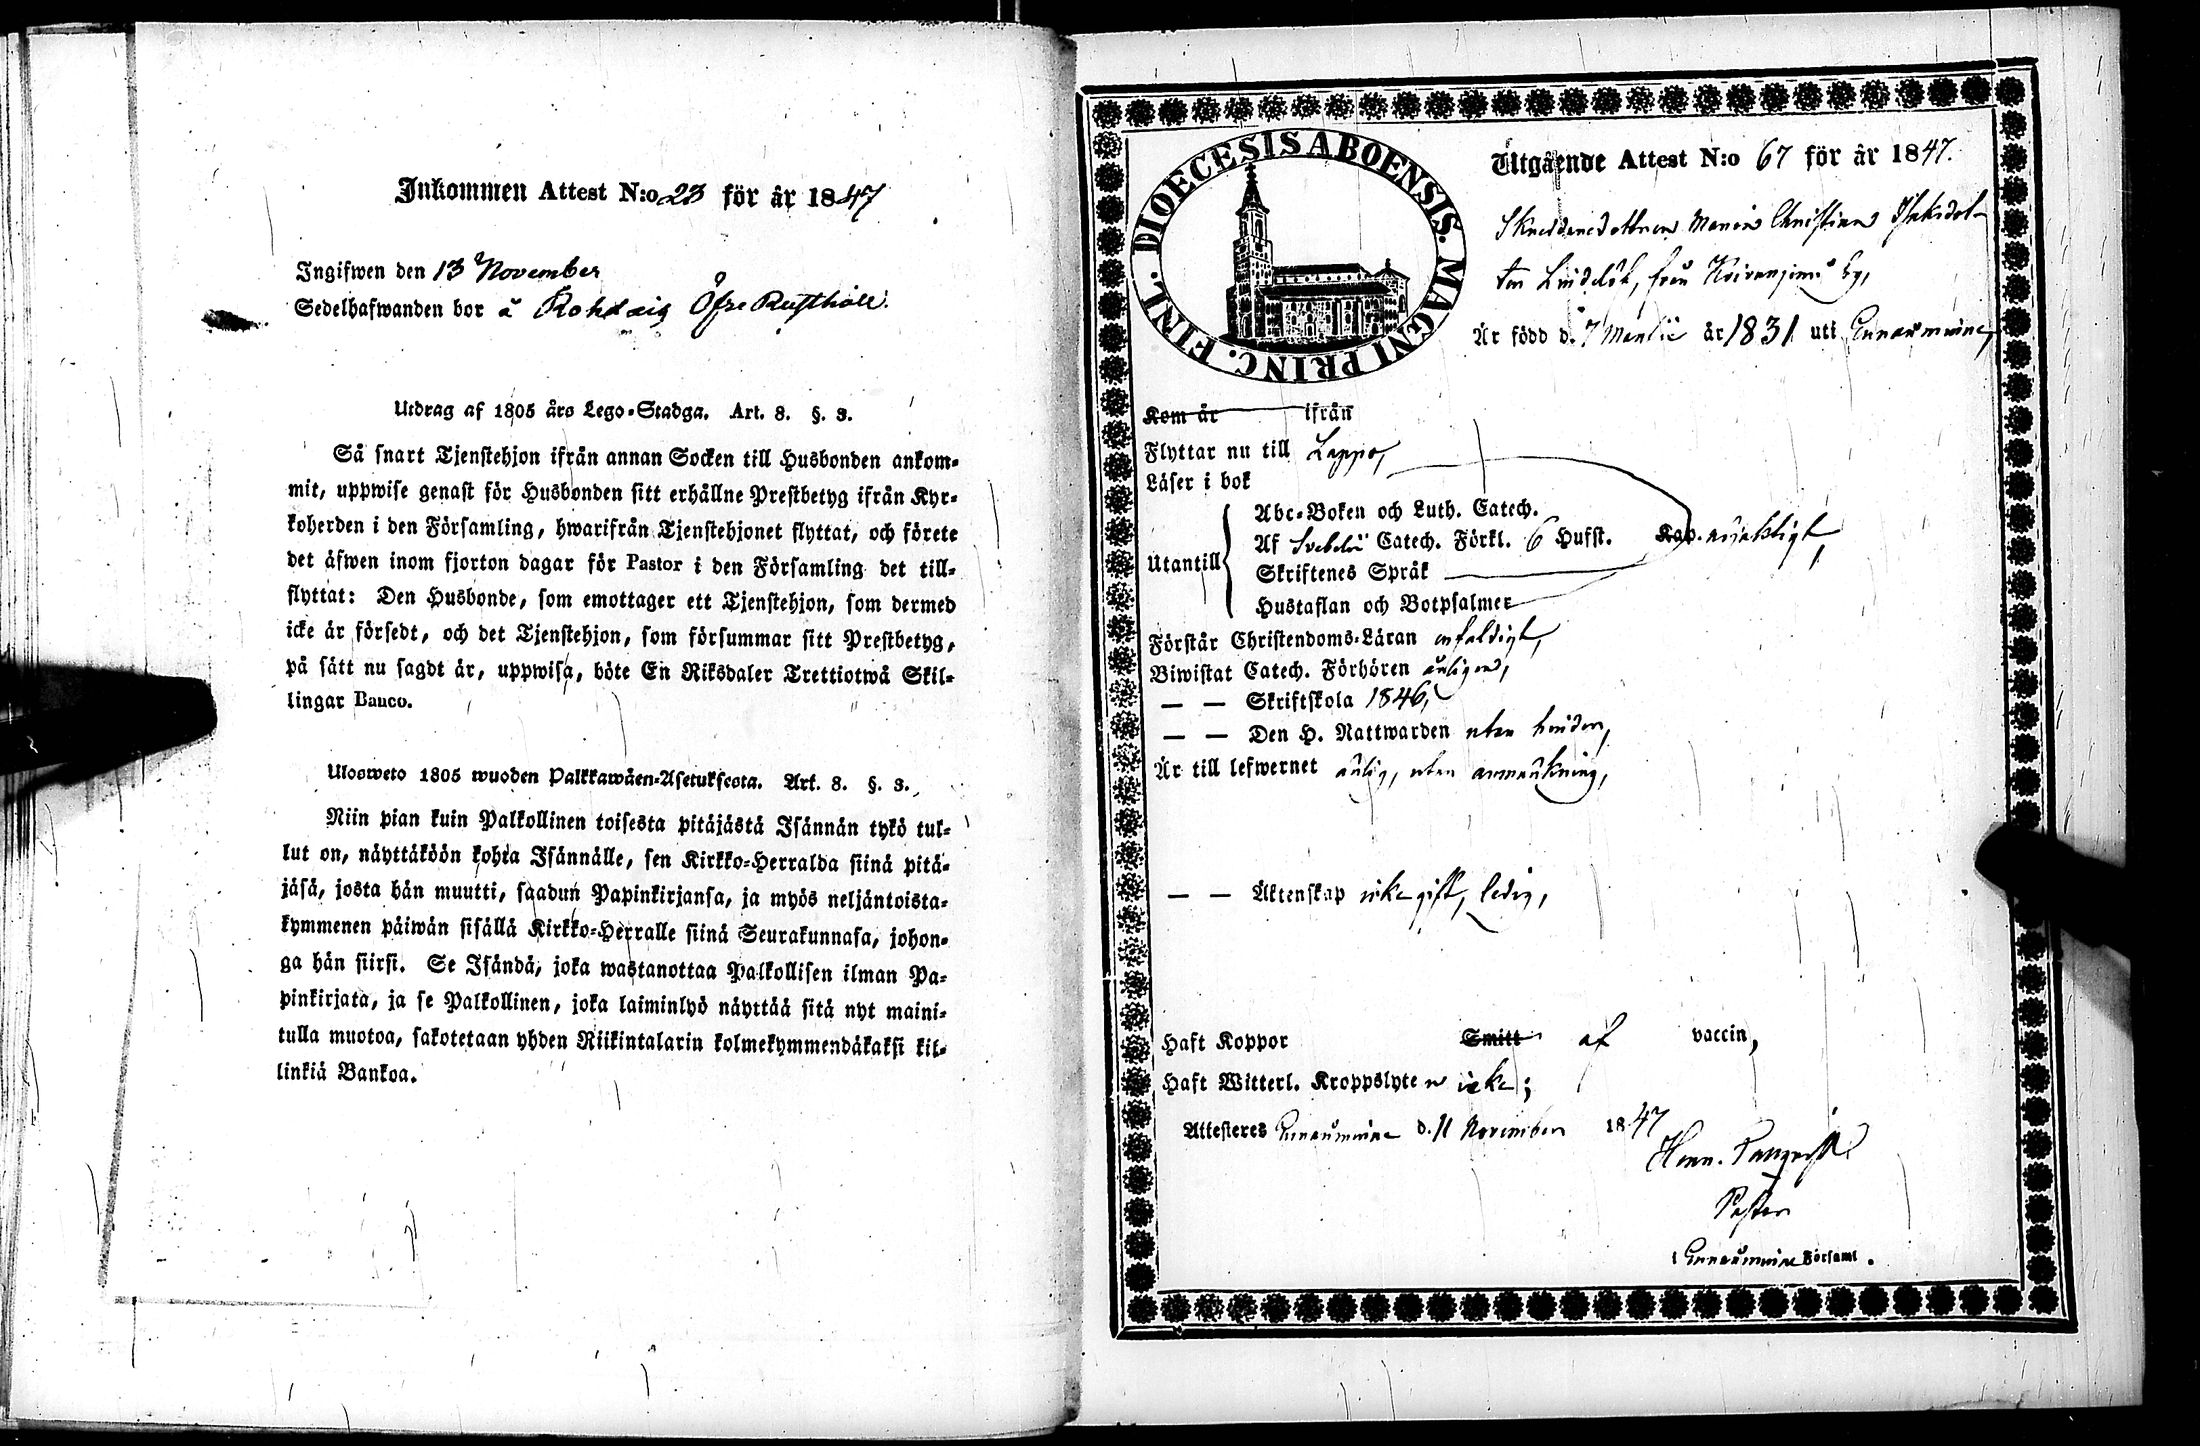 Inkommen Attest N:o 23 för år 1847
Ingifwen den 13 November
Sedelhafwanden bor å Rohdaig Öfre Rusthåll.
Utdrag af 1805 års Lego-Stadga. Art. 8. §. 3.
Så snart Tjenstehjon ifrån annan Socken till Husbonden ankom-
mit, uppwise genast för Husbonden sitt erhållne Prestbetyg ifrån Kyr-
koherden i den Församling, hwarifrån Tjenstehjonet flyttat, och förete
det äfwen inom fjorton dagar för Pastor i den Församling det till-
flyttat: Den Husbonde, som emottager ett Tjenstehjon, som dermed
icke är försedt, och det Tjenstehjon, som försummar sitt Prestbetyg,
på sätt nu sagdt är, uppwisa, böte En Riksdaler Trettiotwå Skil-
lingar Banco.
Ulosweto 1805 wuoden Palkkawäen-Asetuksesta. Art. 8. §. 3.
Niin pian kuin Palkollinen toisesta pitäjästä Isännän tykö tul-
lut on, näyttäköön kohta Isännälle, sen Kirkko-Herralda siinä pitä-
jäsä, josta hän muutti, saadun Papinkirjansa, ja myös neljäntoista-
kymmenen päiwän sisällä Kirkko-Herralle siinä Seurakunnasa, johon-
ga hän siirsi. Se Isändä, joka wastanottaa Palkollisen ilman Pa-
pinkirjata, ja se Palkollinen, joka laiminlyö näyttää sitä nyt maini-
tulla muotoa, sakotetaan yhden Riikintalarin kolmekymmendäkaksi kil-
linkiä Bankoa.
DIOECESIS ABOENSIS. MAGNI PRINC. FINL.
Utgående Attest N:o 67 för år 1847.
Skreddaredottren Maria Christina Isaksdot-
ter Lindelöf, från by,
Är född d. 7 Martii år 1831 uti Ennäminne,
Kom år ifrån
Flyttar nu till Lappo,
Läser i bok
Abc-Boken och Luth. Catech.
Utantill Af Svebelii Catech. Förkl. 6 Hufst. Kap. nöjaktigt,
Skriftenes Språk
Hustaflan och Botpsalmer
Förstår Christendoms-Läran enfaldigt,
Biwistat Catech. Förhören årligen,
— — Skriftskola 1846,
— — Den H. Nattwarden utan hinder,
Är till lefwernet ärlig, utan anmärkning,
— — Äktenskap icke gift, ledig,
Haft Koppor Smitt af vaccin,
Haft Witterl. Kroppslyten icke;
Attesteras d. 11 November 1847
Henr.
Pastor
i Församl.